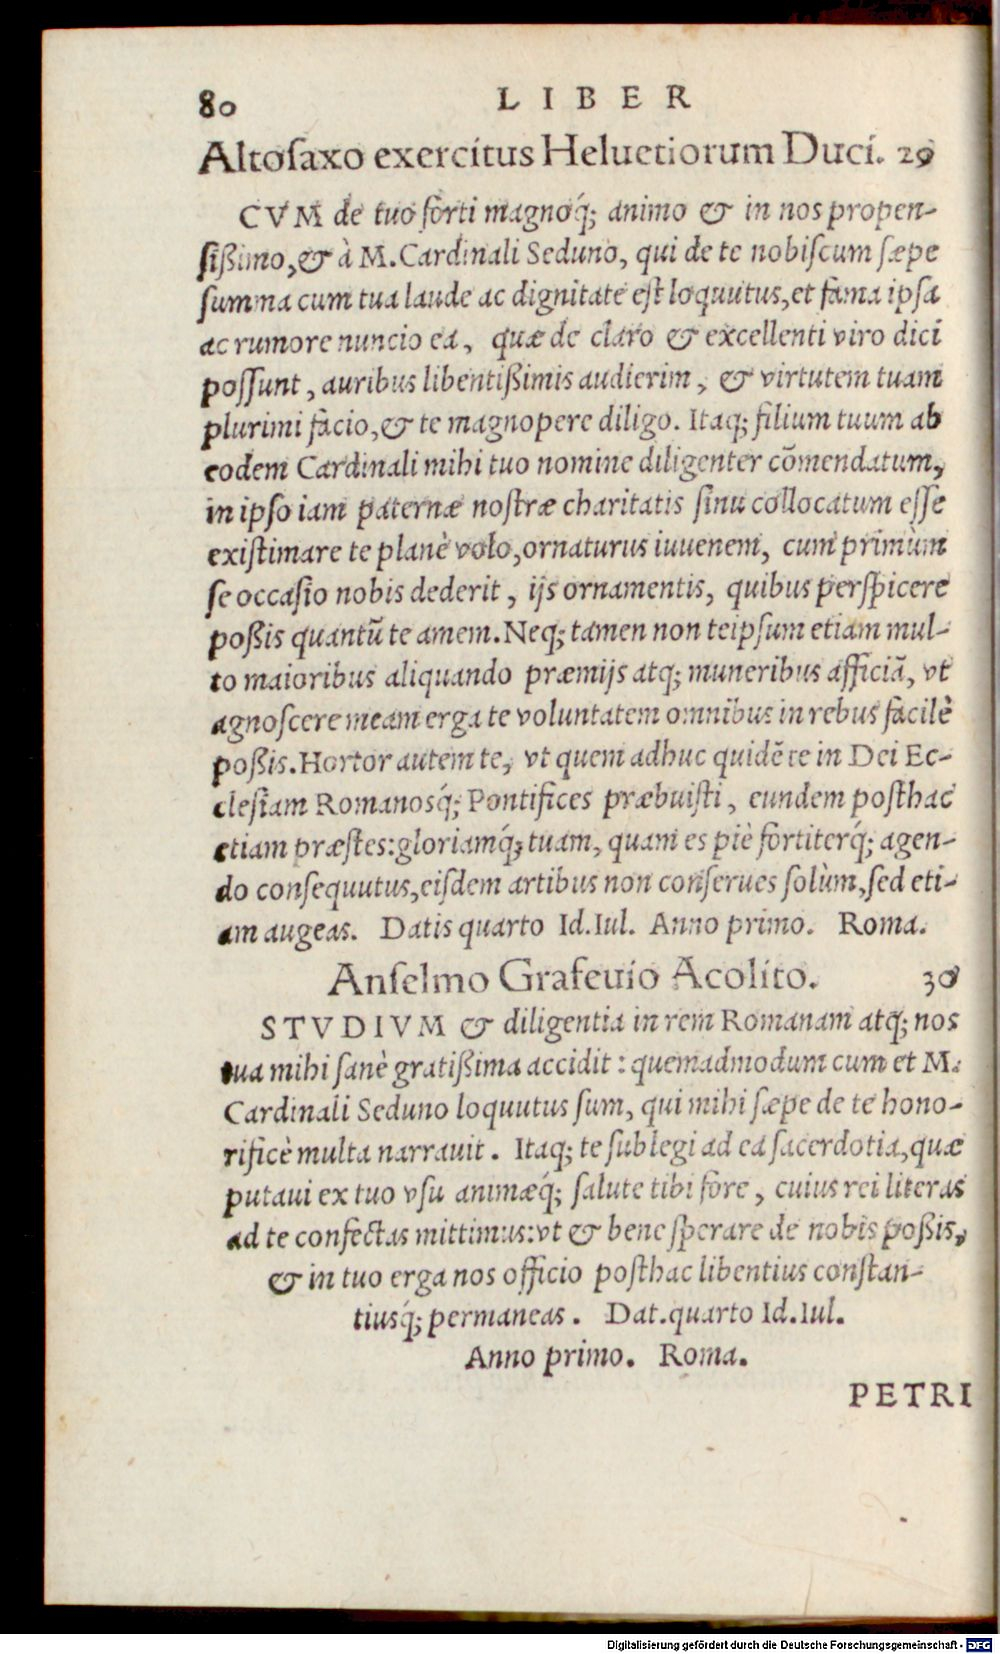 80 LIBER
Altosaxo exercitus Heluetiorum Duci. 29
CVM de tuo forti magnoq́; animo & in nos propen-
sißimo, & à M. Cardinali Seduno, qui de te nobiscum sæpe
summa cum tua laude ac dignitate est loquutus, et fama ipsa
ac rumore nuncio ea, quæ de claro & excellenti viro dici
possunt, auribus libentißimis audierim, & virtutem tuam
plurimi facio, & te magnopere diligo. Itaq; filium tuum ab
eodem Cardinali mihi tuo nomine diligenter cõmendatum,
in ipso iam paternæ nostræ charitatis sinu collocatum esse
existimare te planè volo, ornaturus iuuenem, cum primùm
se occasio nobis dederit, ijs ornamentis, quibus perspicere
poßis quantũ te amem. Neq; tamen non teipsum etiam mul-
to maioribus aliquando præmijs atq; muneribus afficiã, vt
agnoscere meam erga te voluntatem omnibus in rebus facilè
poßis. Hortor autem te, vt quem adhuc quidẽ te in Dei Ec-
clesiam Romanosq́; Pontifices præbuisti, eundem posthac
etiam præstes: gloriamq́; tuam, quam es piè fortiterq́; agen-
do consequutus, eisdem artibus non conserues solùm, sed eti-
am augeas. Datis quarto Id. Iul. Anno primo. Roma.
Anselmo Grafeuio Acolito. 30
STVDIVM & diligentia in rem Romanam atq; nos
tua mihi sanè gratißima accidit: quemadmodum cum et M.
Cardinali Seduno loquutus sum, qui mihi sæpe de te hono-
rificè multa narrauit. Itaq; te sublegi ad ea sacerdotia, quæ
putaui ex tuo vsu animæq́; salute tibi fore, cuius rei literas
ad te confectas mittimus: vt & bene sperare de nobis poßis,
& in tuo erga nos officio posthac libentius constan-
tiusq́; permaneas. Dat. quarto Id. Iul.
Anno primo. Roma.
PETRI
Digitalisierung gefördert durch die Deutsche Forschungsgemeinschaft - DFG